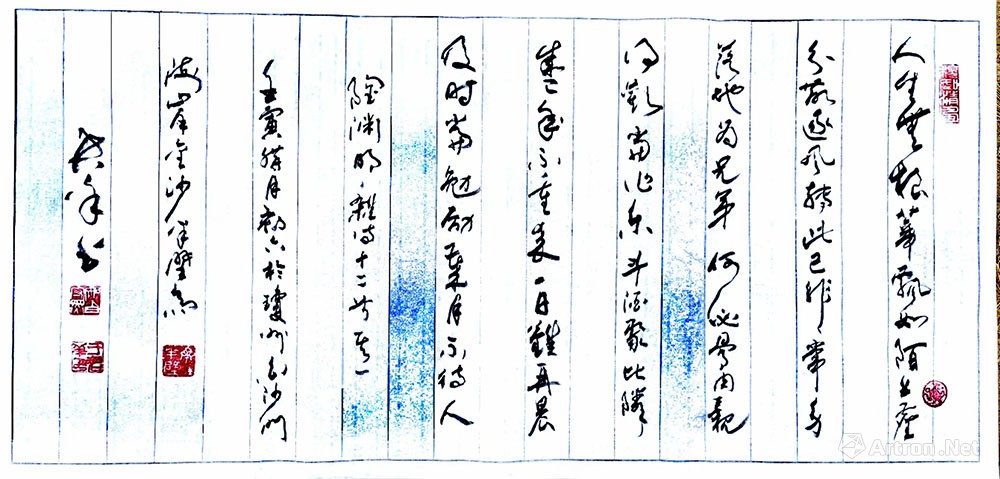 人生無根蒂飄如陌上塵
分散逐風轉此已非常身
落地為兄弟何必骨肉親
得歡當作樂斗酒聚比隣
盛年不重来一日難再晨
及时當勉勵歲月不待人
陶淵明雜诗十二首其一
壬寅臘月初六於瓊州白沙門
海岸金沙半壁
书
Artron.Net